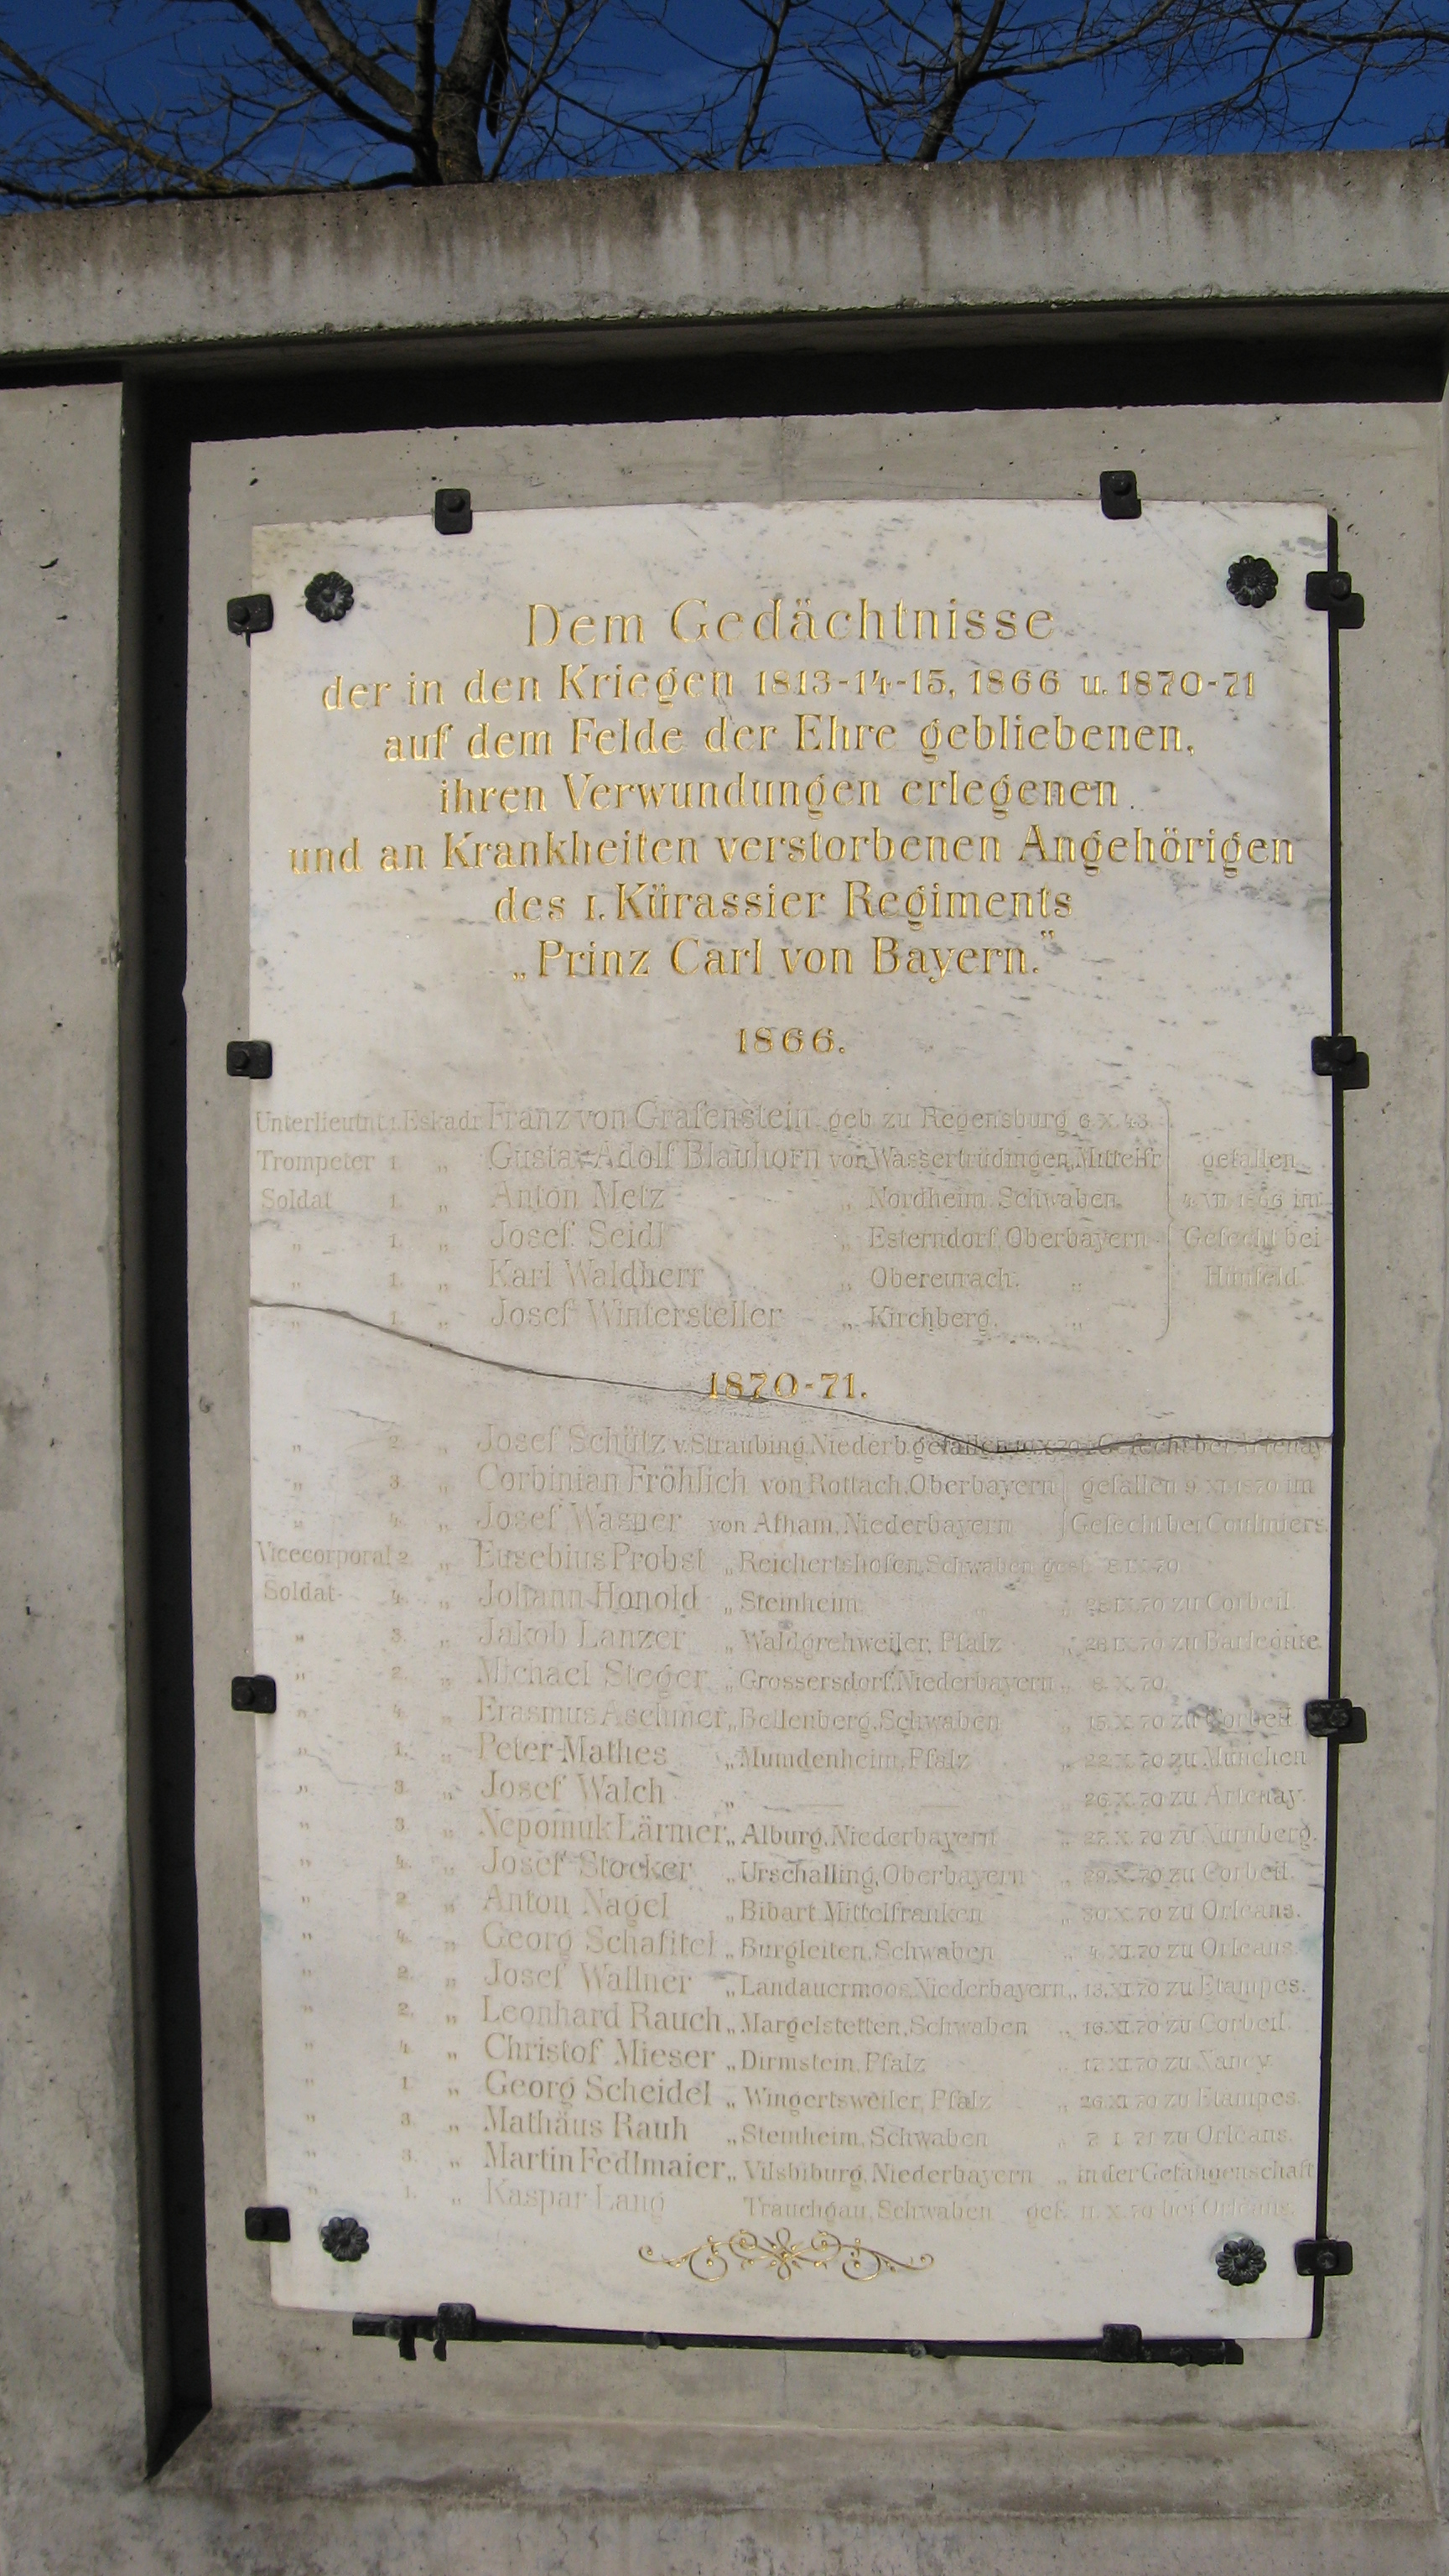 Dem Gedächtnisse
der in den Kriegen 1813-14-15, 1866 u. 1870-71
auf dem Felde der Ehre gebliebenen,
ihren Verwundungen erlegenen
und an Krankheiten verstorbenen Angehörigen
des 1. Kürassier Regiments
„Prinz Carl von Bayern."
1866.
Unterlieutnt. 1. Eskadr. Franz von Grafenstein geb zu Regensburg 6. X. 43.
Trompeter 1. „ Gustav Adolf Blauhorn von Wassertrüdingen, Mittelfr. gefallen
Soldat 1. „ Anton Metz „ Nordheim, Schwaben. 4. VII. 1866 im
„ 1. „ Josef Seidl „ Esterndorf, Oberbayern Gefecht bei
„ 1. „ Karl Waldherr „ Obereurach. „ Hünfeld.
„ 1. „ Josef Wintersteller „ Kirchberg. „
1870-71.
„ 2. „ Josef Schütz v. Straubing, Niederb. gefallen Gefecht bei Artenay
„ 3. „ Corbinian Fröhlich von Rottach, Oberbayern gefallen 9. XI. 1870 im
„ 4. „ Josef Wasner von Afham, Niederbayern Gefecht bei Coulmiers.
Vicecorporal 2. „ Eusebius Probst „ Reichertshofen, Schwaben gest. 8. IX. 70.
Soldat 4. „ Johann Honold „ Steinheim. „ „ 28. IX. 70 zu Corbeil.
„ 3. „ Jakob Lanzer „ Waldgrehweiler, Pfalz „ 28. IX. 70 zu Barleduc.
„ 2. „ Michael Steger „ Grossersdorf, Niederbayern „ 8. X. 70.
„ 4. „ Erasmus Aschmer „ Bellenberg, Schwaben „ 15. X. 70 zu Corbeil.
„ 1. „ Peter Mathes „ Mumdenheim, Pfalz „ 22. X. 70 zu München
„ 3. „ Josef Walch „ „ 26. X. 70 zu Artenay.
„ 3. „ Nepomuk Lärmer „ Alburg, Niederbayern „ 27. X. 70 zu Nürnberg.
„ 4. „ Josef Stocker „ Urschalling, Oberbayern „ 29. X. 70 zu Corbeil.
„ 2. „ Anton Nagel „ Bibart Mittelfranken „ 30. X. 70 zu Orleans.
„ 4. „ Georg Schafitel „ Burgleiten, Schwaben „ 4. XI. 70 zu Orleans.
„ 2. „ Josef Wallner „ Landauermoos, Niederbayern „ 13. XI. 70 zu Etampes.
„ 2. „ Leonhard Rauch „ Margelstetten, Schwaben „ 16. XI. 70 zu Corbeil.
„ 4. „ Christof Mieser „ Dirmstein, Pfalz „ 17. XI. 70 zu Nancy.
„ 1. „ Georg Scheidel „ Wingertsweiler, Pfalz „ 26. XI. 70 zu Etampes.
„ 3. „ Mathäus Rauh „ Steinheim, Schwaben „ 7. I. 71 zu Orleans.
„ 3. „ Martin Fedlmaier „ Vilsbiburg, Niederbayern „ in der Gefangenschaft
„ 1. „ Kaspar Lang Trauchgau, Schwaben gef. 11. X. 70 bei Orleans.